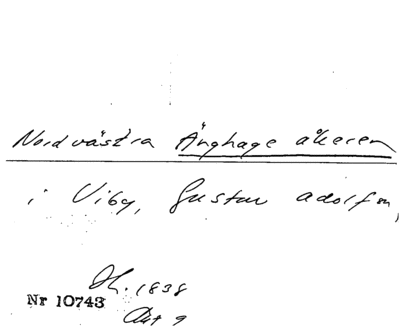 Nordvästra Änghage åkeren
i Viby, Gustav adolf sn,
H. 1838
Nr 10743
Akt 9